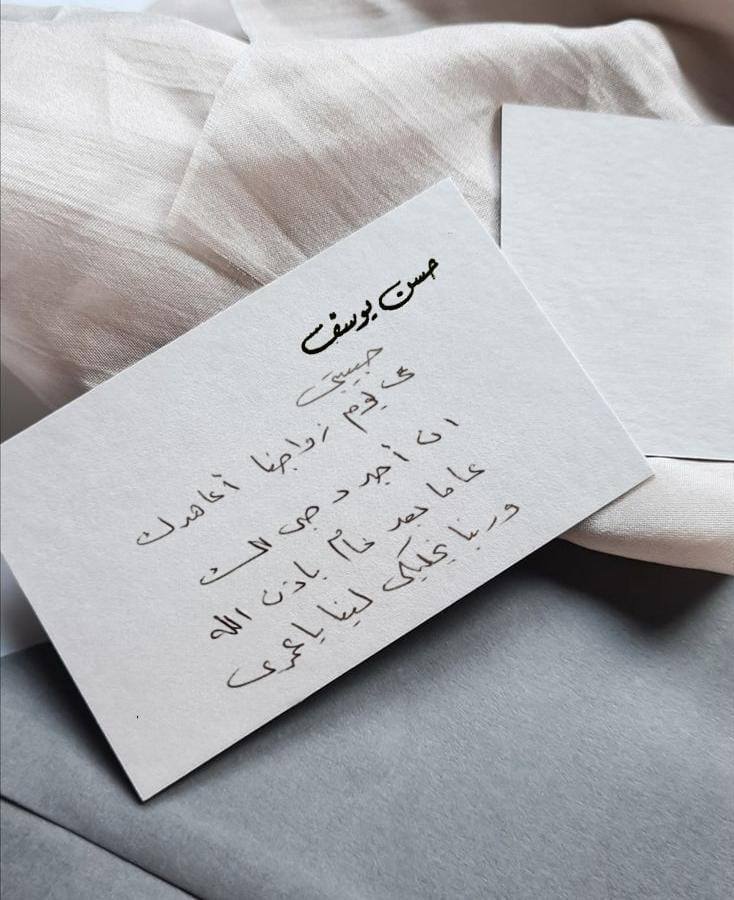 حسن يوسف
حبيبتى
فى يوم زواجنا أعاهدك
ان أجدد حبى لك
عاما بعد عام باذن الله
وربنا يخليكى لينا يا عمرى